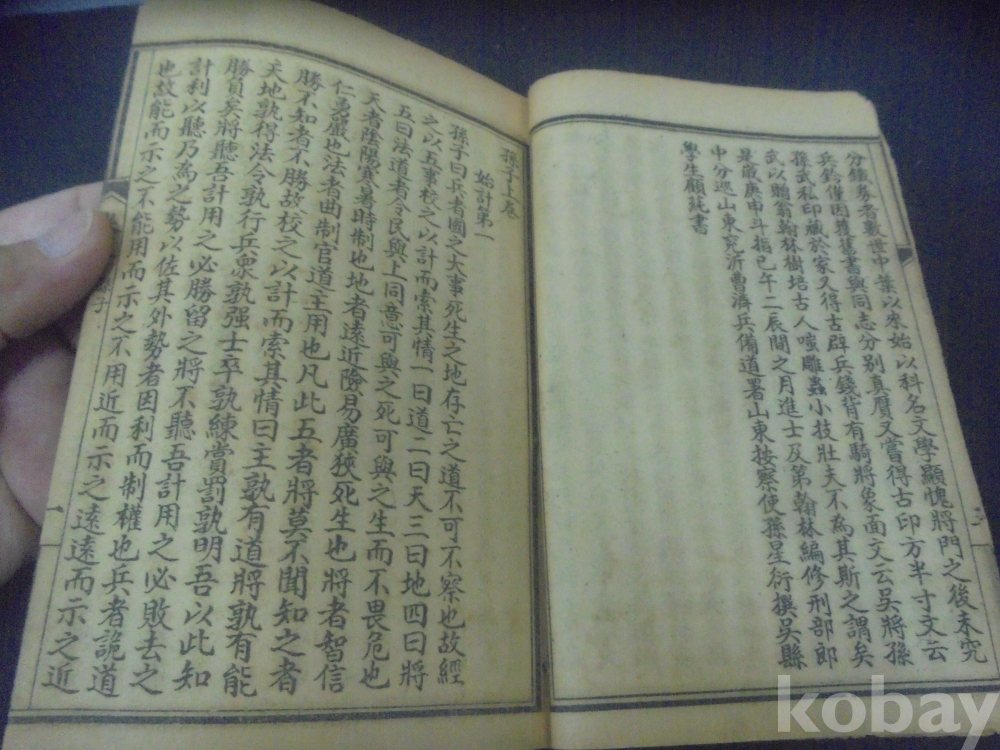 分鎮券者數世中葉以來始以科名文學顯愧將門之後未究
兵鈐僅因舊書與同志分別真贋又嘗得古印方半寸文云
孫武私印藏於家又得古辟兵錢背有騎將象面文云吳將孫
武以贈翁翰林樹培古人嗤雕蟲小技壯夫不為其斯之謂矣
是歲庚申斗指巳午二辰間之月進士及第翰林編修刑部郎
中分巡山東兗沂曹濟兵備道署山東按察使孫星衍撰吳縣
學生顧蒓書
孫子上卷
始計第一
孫子曰兵者國之大事死生之地存亡之道不可不察也故經
之以五事校之以計而索其情一曰道二曰天三曰地四曰將
五曰法道者令民與上同意可與之死可與之生而不畏危也
天者陰陽寒暑時制也地者遠近險易廣狹死生也將者智信
仁勇嚴也法者曲制官道主用也凡此五者將莫不聞知之者
勝不知者不勝故校之以計而索其情曰主孰有道將孰有能
天地孰得法令孰行兵衆孰强士卒孰練賞罰孰明吾以此知
勝負矣將聽吾計用之必勝留之將不聽吾計用之必敗去之
計利以聽乃為之勢以佐其外勢者因利而制權也兵者詭道
也故能而示之不能用而示之不用近而示之遠遠而示之近
子
一
kobay